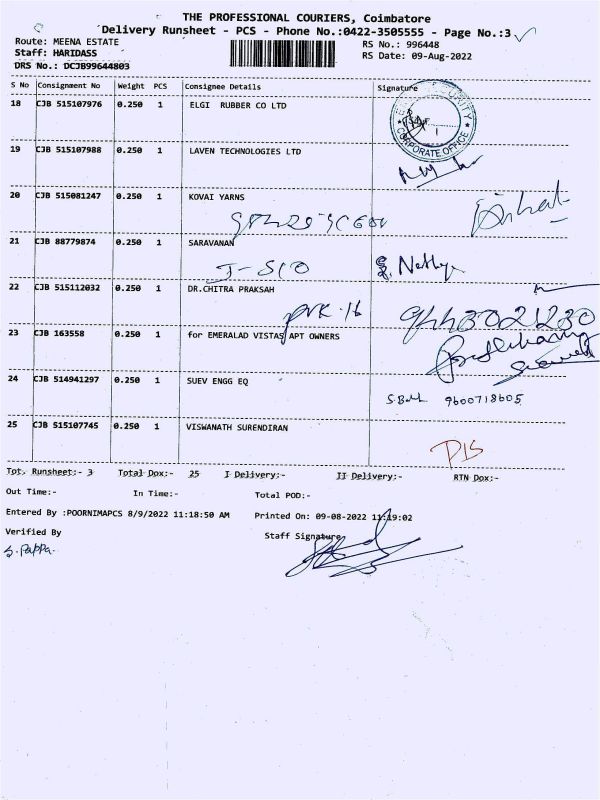 THE PROFESSIONAL COURIERS, Coimbatore
Delivery Runsheet - PCS - Phone No.:0422-3505555 - Page No.:3
Route: MEENA ESTATE
RS No.: 996448
Staff: HARIDASS
RS Date: 09-Aug-2022
DRS No.: DCJB99644803
S No Consignment No Weight PCS Consignee Details Signature
18 CJB 515107976 0.250 1 ELGI RUBBER CO LTD
CORPORATE OFFICE
19 CJB 515107988 0.250 1 LAVEN TECHNOLOGIES LTD
20 CJB 515081247 0.250 1 KOVAI YARNS
21 CJB 88779874 0.250 1 SARAVANAN
22 CJB 515112032 0.250 1 DR.CHITRA PRAKSAH
23 CJB 163558 0.250 1 for EMERALAD VISTAS APT OWNERS
24 CJB 514941297 0.250 1 SUEV ENGG EQ
9600718605
25 CJB 515107745 0.250 1 VISWANATH SURENDIRAN
Tot. Runsheet:- 3 Total Dox:- 25 I Delivery:- II Delivery:- RTN Dox:-
Out Time:- In Time:- Total POD:-
Entered By :POORNIMAPCS 8/9/2022 11:18:50 AM Printed On: 09-08-2022 11:19:02
Verified By Staff Signature
S. Pappa.